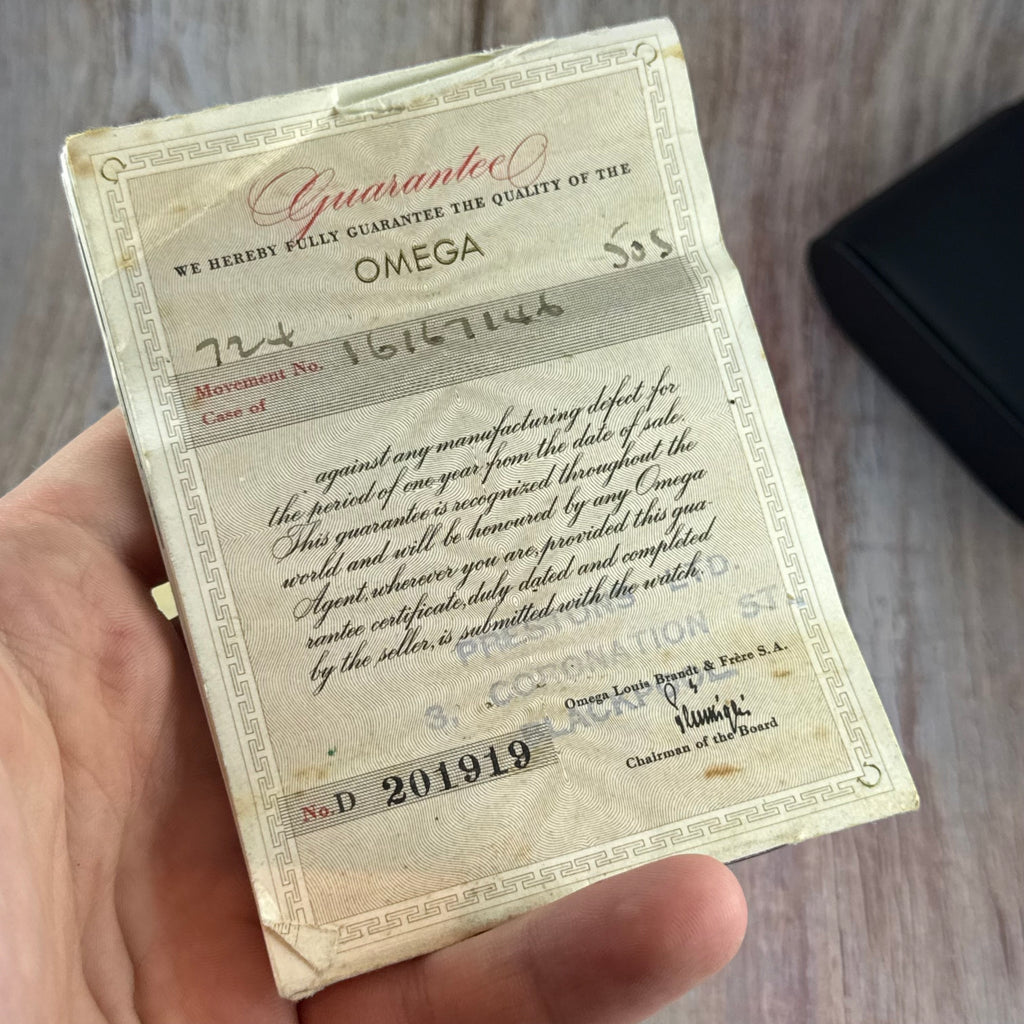 Guarantee
WE HEREBY FULLY GUARANTEE THE QUALITY OF THE
OMEGA
505
724
Movement No. 16167146
Case of
against any manufacturing defect for
the period of one year from the date of sale.
This guarantee is recognized throughout the
world and will be honoured by any Omega
Agent, wherever you are, provided this gua-
rantee certificate, duly dated and completed
by the seller, is submitted with the watch.
PRESTONS LTD.
3, CORONATION ST.,
BLACKPOOL.
Omega Louis Brandt & Frère S.A.
Chairman of the Board
No. D 201919